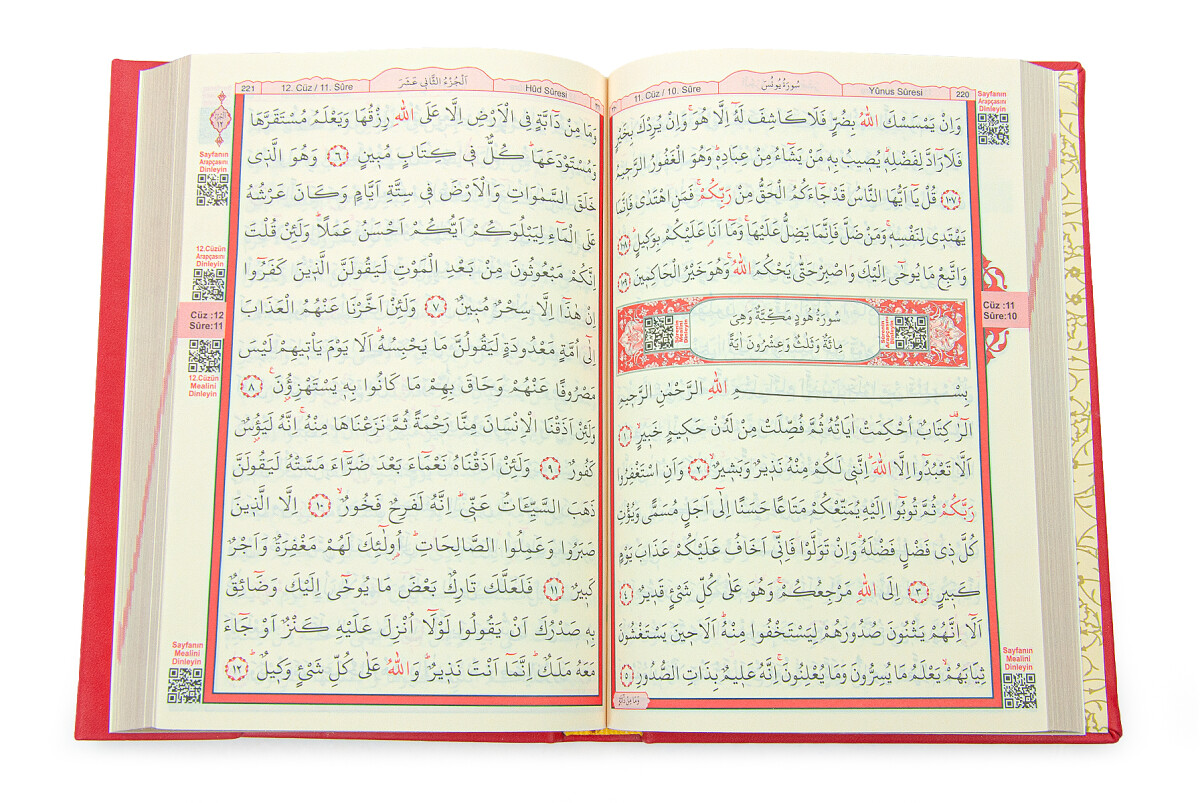 220
Yûnus Sûresi
سُورَةُ يُونُسَ
11. Cüz / 10. Sûre
وَاِنْ يَمْسَسْكَ اللّٰهُ بِضُرٍّ فَلَا كَاشِفَ لَهُٓ اِلَّا هُوَۚ وَاِنْ يُرِدْكَ بِخَيْرٍ
فَلَا رَٓادَّ لِفَضْلِهٖۜ يُصٖيبُ بِهٖ مَنْ يَشَٓاءُ مِنْ عِبَادِهٖۜ وَهُوَ الْغَفُورُ الرَّحٖيمُ
﴿١٠٧﴾ قُلْ يَٓا اَيُّهَا النَّاسُ قَدْ جَٓاءَكُمُ الْحَقُّ مِنْ رَبِّكُمْۚ فَمَنِ اهْتَدٰى فَاِنَّمَا
يَهْتَدٖى لِنَفْسِهٖۚ وَمَنْ ضَلَّ فَاِنَّمَا يَضِلُّ عَلَيْهَاۚ وَمَٓا اَنَا۬ عَلَيْكُمْ بِوَكٖيلٍۜ ﴿١٠٨﴾
وَاتَّبِعْ مَا يُوحٰٓى اِلَيْكَ وَاصْبِرْ حَتّٰى يَحْكُمَ اللّٰهُۚ وَهُوَ خَيْرُ الْحَاكِمٖينَ ﴿١٠٩﴾
سُورَةُ هُودٍ مَكِّيَّةٌ وَهِىَ
مِائَةٌ وَثَلٰثٌ وَعِشْرُونَ اٰيَةً
Sayfanın
Mealini
Dinleyin
بِسْمِ اللّٰهِ الرَّحْمٰنِ الرَّحٖيمِ
الٓرٰ۠ كِتَابٌ اُحْكِمَتْ اٰيَاتُهُ ثُمَّ فُصِّلَتْ مِنْ لَدُنْ حَكٖيمٍ خَبٖيرٍۙ ﴿١﴾
اَلَّا تَعْبُدُٓوا اِلَّا اللّٰهَۜ اِنَّنٖى لَكُمْ مِنْهُ نَذٖيرٌ وَبَشٖيرٌۙ ﴿٢﴾ وَاَنِ اسْتَغْفِرُوا
رَبَّكُمْ ثُمَّ تُوبُٓوا اِلَيْهِ يُمَتِّعْكُمْ مَتَاعًا حَسَنًا اِلٰٓى اَجَلٍ مُسَمًّى وَيُؤْتِ
كُلَّ ذٖى فَضْلٍ فَضْلَهُۜ وَاِنْ تَوَلَّوْا فَاِنّٖٓى اَخَافُ عَلَيْكُمْ عَذَابَ يَوْمٍ
كَبٖيرٍ ﴿٣﴾ اِلَى اللّٰهِ مَرْجِعُكُمْۚ وَهُوَ عَلٰى كُلِّ شَىْءٍ قَدٖيرٌ ﴿٤﴾
اَلَٓا اِنَّهُمْ يَثْنُونَ صُدُورَهُمْ لِيَسْتَخْفُوا مِنْهُۜ اَلَا حٖينَ يَسْتَغْشُونَ
ثِيَابَهُمْۙ يَعْلَمُ مَا يُسِرُّونَ وَمَا يُعْلِنُونَۚ اِنَّهُ عَلٖيمٌ بِذَاتِ الصُّدُورِ ﴿٥﴾
وَمَا مِنْ دَٓابَّةٍ
Sayfanın
Arapçasını
Dinleyin
Cüz :11
Sûre:10
Sayfanın
Mealini
Dinleyin
221
12. Cüz / 11. Sûre
اَلْجُزْءُ الثَّانٖى عَشَرَ
Hûd Sûresi
وَمَا مِنْ دَٓابَّةٍ فِى الْاَرْضِ اِلَّا عَلَى اللّٰهِ رِزْقُهَا وَيَعْلَمُ مُسْتَقَرَّهَا
وَمُسْتَوْدَعَهَاۜ كُلٌّ فٖى كِتَابٍ مُبٖينٍ ﴿٦﴾ وَهُوَ الَّذٖى
خَلَقَ السَّمٰوَاتِ وَالْاَرْضَ فٖى سِتَّةِ اَيَّامٍ وَكَانَ عَرْشُهُ
عَلَى الْمَٓاءِ لِيَبْلُوَكُمْ اَيُّكُمْ اَحْسَنُ عَمَلًاۜ وَلَئِنْ قُلْتَ
اِنَّكُمْ مَبْعُوثُونَ مِنْ بَعْدِ الْمَوْتِ لَيَقُولَنَّ الَّذٖينَ كَفَرُٓوا
اِنْ هٰذَٓا اِلَّا سِحْرٌ مُبٖينٌ ﴿٧﴾ وَلَئِنْ اَخَّرْنَا عَنْهُمُ الْعَذَابَ
اِلٰٓى اُمَّةٍ مَعْدُودَةٍ لَيَقُولُنَّ مَا يَحْبِسُهُۜ اَلَا يَوْمَ يَاْتٖيهِمْ لَيْسَ
مَصْرُوفًا عَنْهُمْ وَحَاقَ بِهِمْ مَا كَانُوا بِهٖ يَسْتَهْزِؤُ۫نَ۟ ﴿٨﴾
وَلَئِنْ اَذَقْنَا الْاِنْسَانَ مِنَّا رَحْمَةً ثُمَّ نَزَعْنَاهَا مِنْهُۚ اِنَّهُ لَيَؤُ۫سٌ
كَفُورٌ ﴿٩﴾ وَلَئِنْ اَذَقْنَاهُ نَعْمَٓاءَ بَعْدَ ضَرَّٓاءَ مَسَّتْهُ لَيَقُولَنَّ
ذَهَبَ السَّيِّـَٔاتُ عَنّٖىۜ اِنَّهُ لَفَرِحٌ فَخُورٌۙ ﴿١٠﴾ اِلَّا الَّذٖينَ
صَبَرُوا وَعَمِلُوا الصَّالِحَاتِۜ اُو۬لٰٓئِكَ لَهُمْ مَغْفِرَةٌ وَاَجْرٌ
كَبٖيرٌ ﴿١١﴾ فَلَعَلَّكَ تَارِكٌ بَعْضَ مَا يُوحٰٓى اِلَيْكَ وَضَٓائِقٌ
بِهٖ صَدْرُكَ اَنْ يَقُولُوا لَوْلَٓا اُنْزِلَ عَلَيْهِ كَنْزٌ اَوْ جَٓاءَ
مَعَهُ مَلَكٌۜ اِنَّمَٓا اَنْتَ نَذٖيرٌۜ وَاللّٰهُ عَلٰى كُلِّ شَىْءٍ وَكٖيلٌۜ ﴿١٢﴾
Sayfanın
Arapçasını
Dinleyin
12.Cüzün
Arapçasını
Dinleyin
Cüz :12
Sûre:11
12.Cüzün
Mealini
Dinleyin
Sayfanın
Mealini
Dinleyin